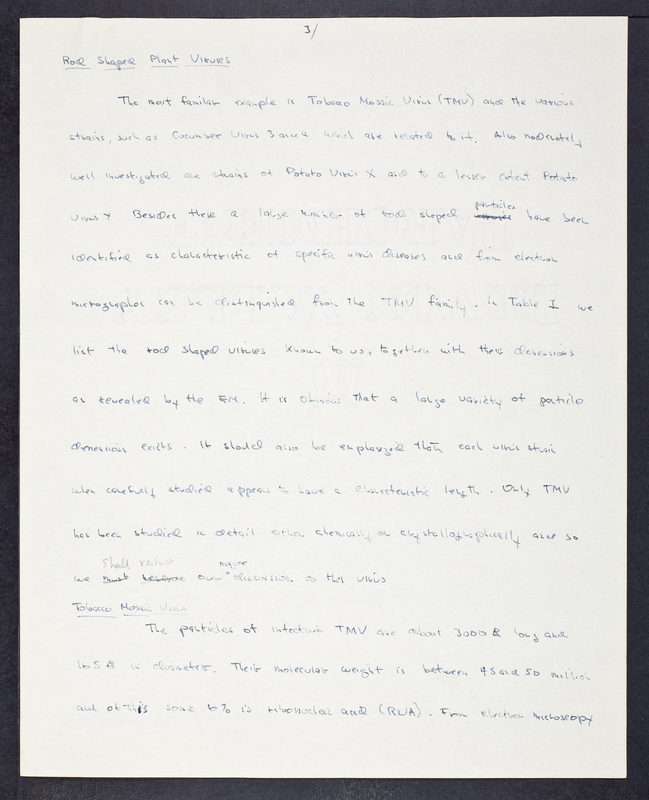 3/
Rod Shaped Plant Viruses
The most familiar example is Tobacco Mosaic Virus (TMV) and the various
strains, such as Cucumber Virus 3 and 4 which are related to it. Also moderately
well investigated are strains of Potato Virus X and to a lesser extent Potato
particles
Virus Y Besides these a large number of rod shaped viruses have been
identified as characteristic of specific virus diseases and from electron
micrographs can be distinguished from the TMV family. In Table I we
list the rod shaped viruses known to us, together with their dimensions
as revealed by the EM. It is obvious that a large variety of particle
dimensions exists. It should also be emphasized that each virus strain
when carefully studied appears to have a characteristic length. Only TMV
has been studied in detail either chemically or crystallographically and so
shall restrict
we must our discussion to this virus
Tobacco Mosaic Virus
The particles of infective TMV are about 3000 Å long and
165 Å in diameter. Their molecular weight is between 45 and 50 million
and of this some 6% is ribonucleic acid (RNA). From electron microscopy